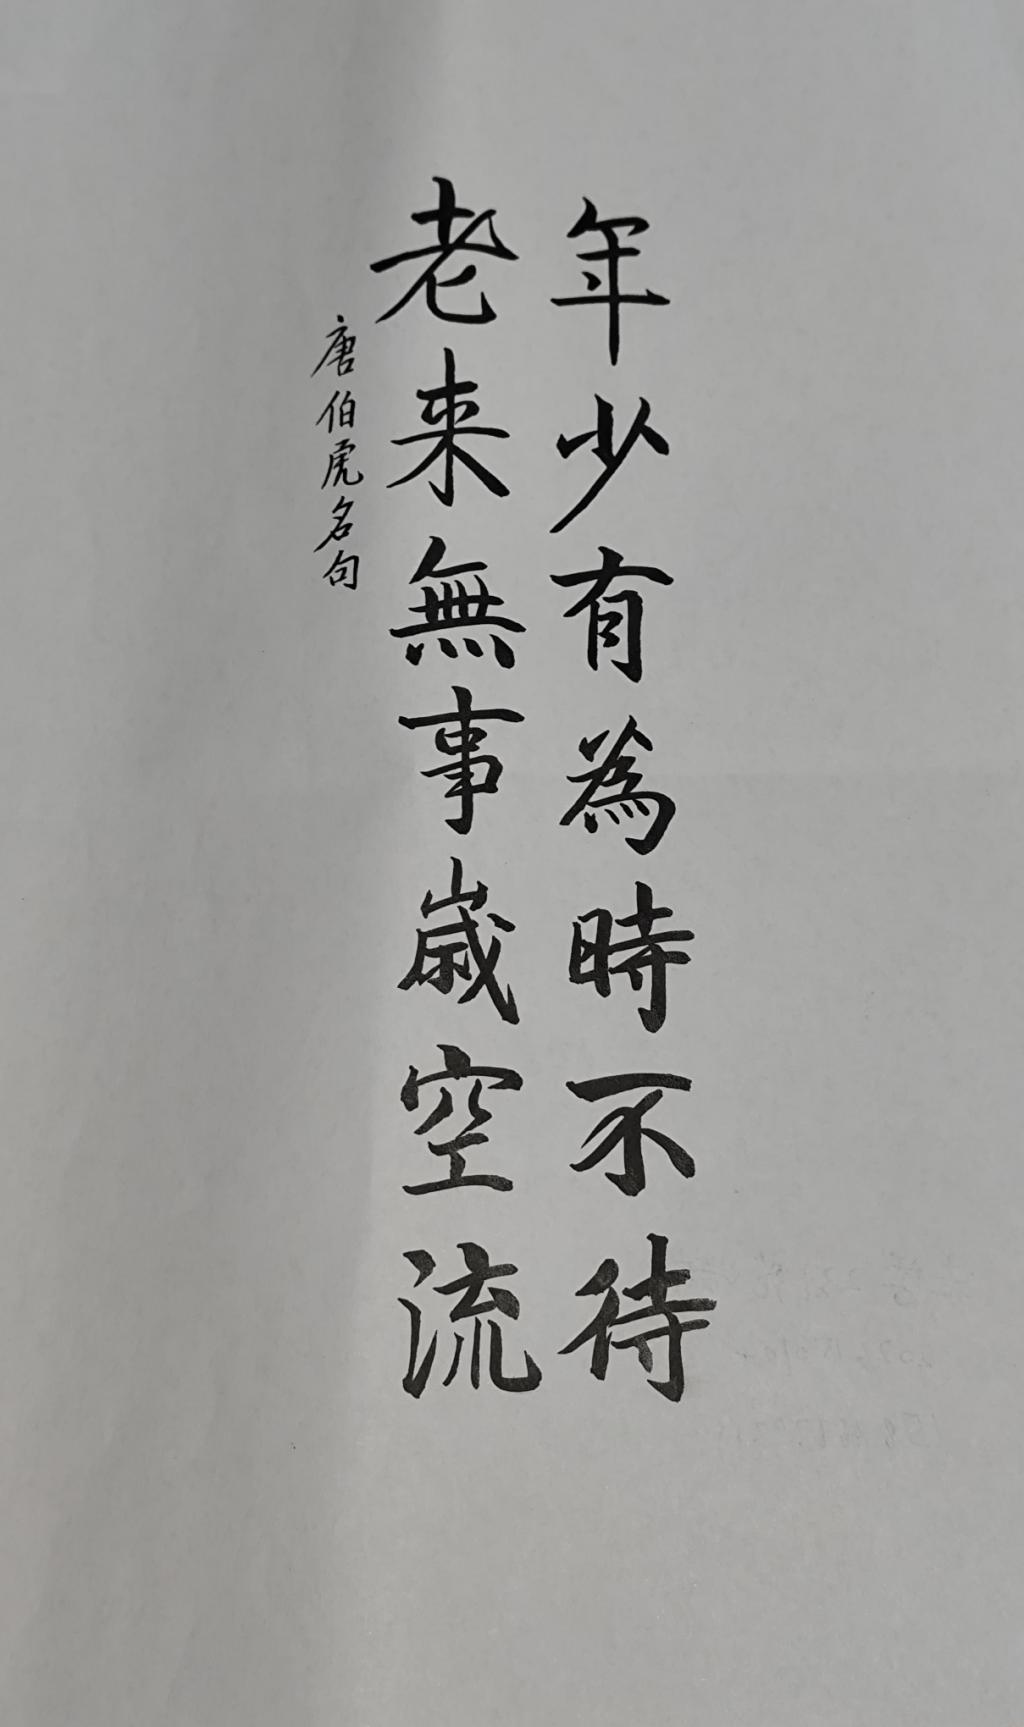 年少有為時不待
老来無事歲空流
唐伯虎名句